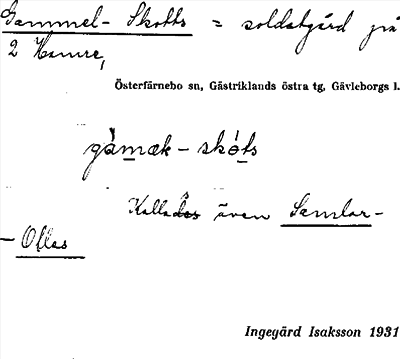 Gammel-Skotts = soldatgård på
2 Hamre,
Österfärnebo sn, Gästriklands östra tg, Gävleborgs l.
gàmæk-skóts
Kallades även Samlar-
- Olles
Ingegärd Isaksson 1931